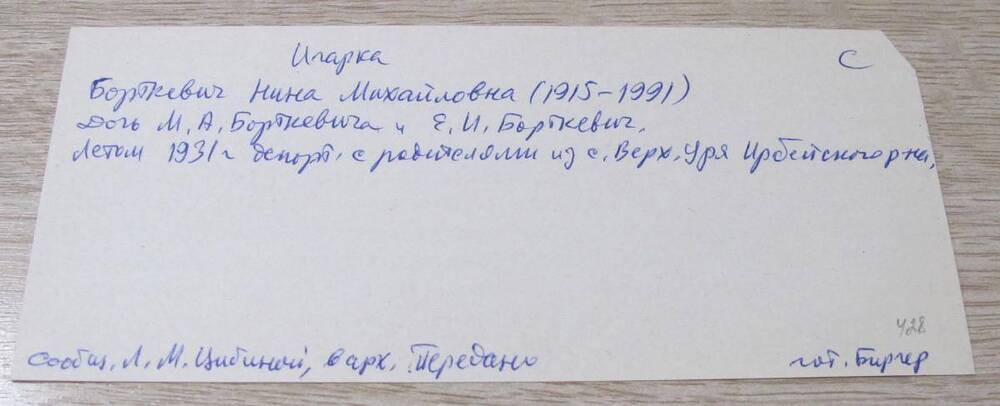 Игарка С
Борткевич Нина Михайловна (1915-1991)
Дочь М.А. Борткевича и Е.И. Борткевич.
Летом 1931 г депорт. с родителями из с. Верх. Уря Ирбейского р-на,
428
Сообщ. Л.М. Цибиной, в арх. Передано гот. Биргер